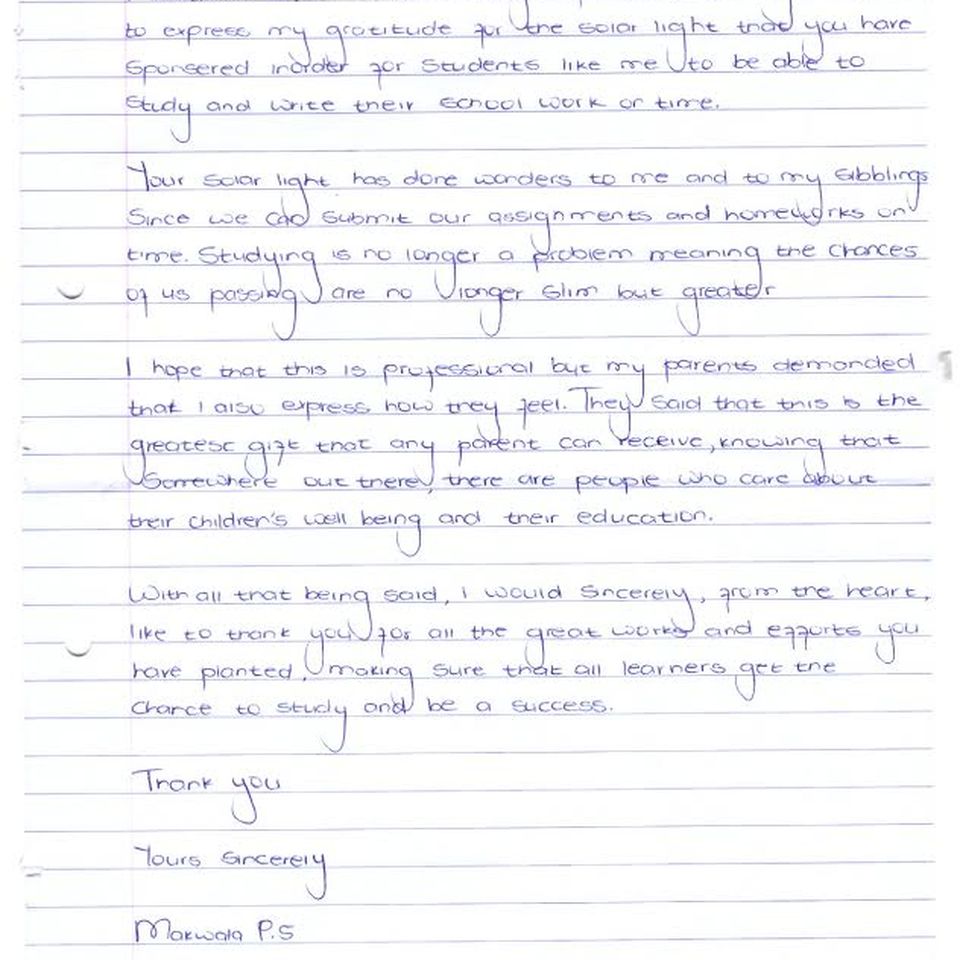 to express my gratitude for the solar light that you have
sponsered inorder for students like me to be able to
study and write their school work on time.
Your solar light has done wonders to me and to my sibblings
since we can submit our assignments and homeworks on
time. Studying is no longer a problem meaning the chances
of us passing are no longer slim but greater
I hope that this is professional but my parents demonded
that I also express how they feel. They said that this is the
greatest gift that any parent can receive, knowing that
somewhere out there, there are people who care about
their children's well being and their education.
With all that being said, I would sincerely, from the heart,
like to thank you for all the great works and efforts you
have planted, making sure that all learners get the
chance to study and be a success.
Thank you
Yours sincerely
Makwala P.S